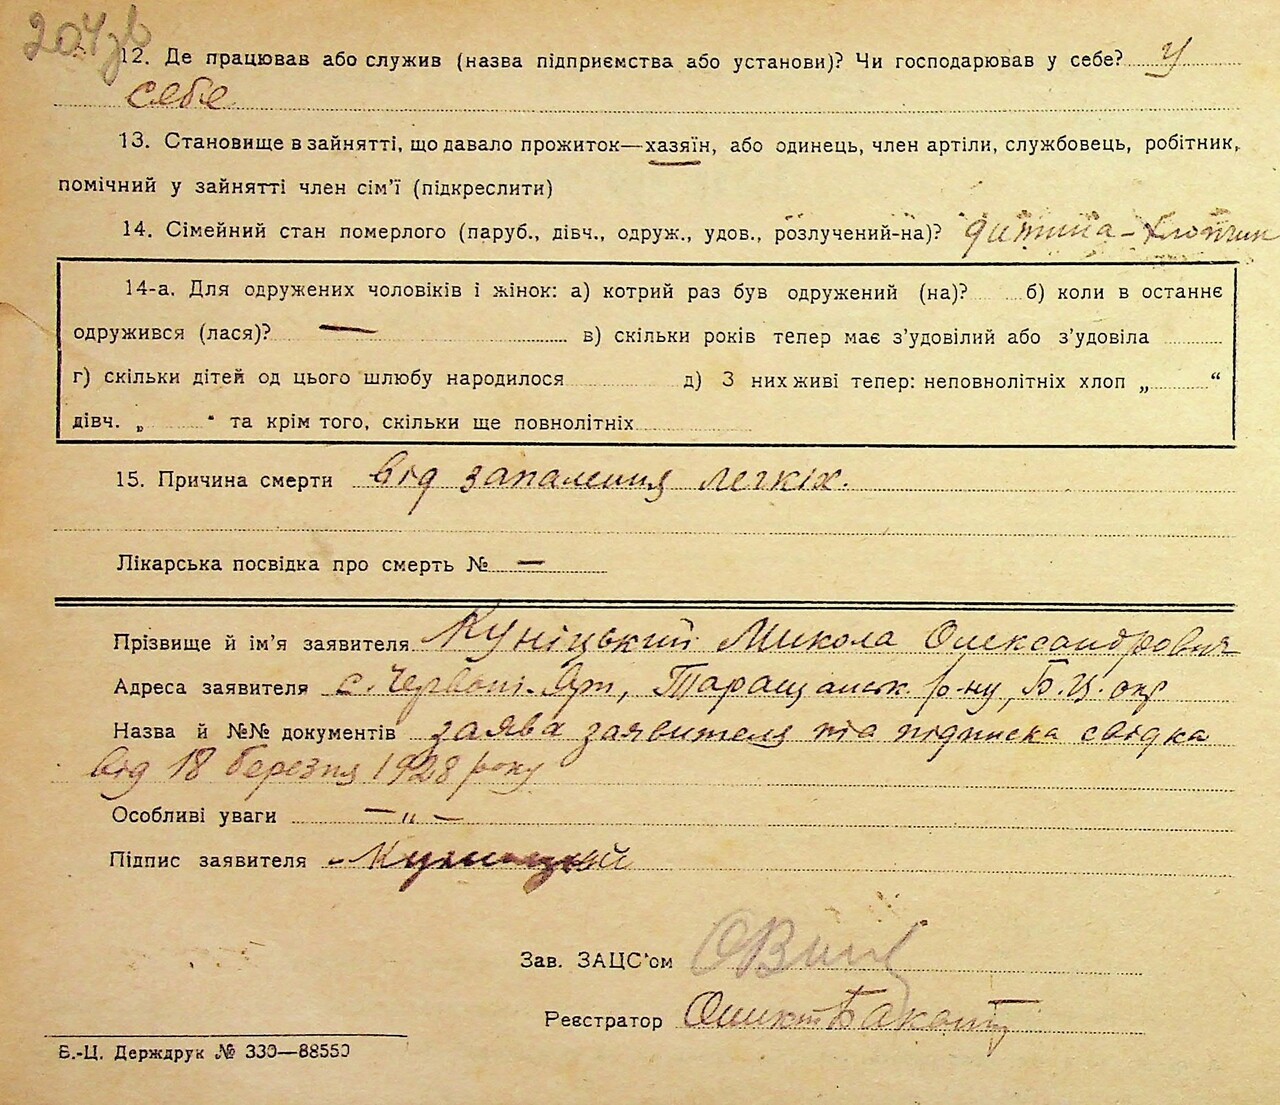 204зв
12. Де працював або служив (назва підприємства або установи)? Чи господарював у себе? У
себе
13. Становище в зайнятті, що давало прожиток—хазяїн, або одинець, член артілі, службовець, робітник,
помічний у зайнятті член сім'ї (підкреслити)
14. Сімейний стан померлого (паруб., дівч., одруж., удов., розлучений-на)? дитина - хлопчик
14-а. Для одружених чоловіків і жінок: а) котрий раз був одружений (на)? б) коли в останнє
одружився (лася)? — в) скільки років тепер має з'удовілий або з'удовіла
г) скільки дітей од цього шлюбу народилося д) З них живі тепер: неповнолітніх хлоп „ “
дівч. „ “ та крім того, скільки ще повнолітніх
15. Причина смерти від запалення легкіх.
Лікарська посвідка про смерть № —
Прізвище й ім'я заявителя Куніцький Микола Олександрович
Адреса заявителя с. Червоні-Яр, Таращанськ. р-ну, Б.Ц. окр
Назва й №№ документів заява заявителя та підписка свідка
від 18 березня 1928 року
Особливі уваги — „ —
Підпис заявителя Куницкий
Зав. ЗАЦС'ом
Реєстратор
Б.-Ц. Держдрук № 330—88550